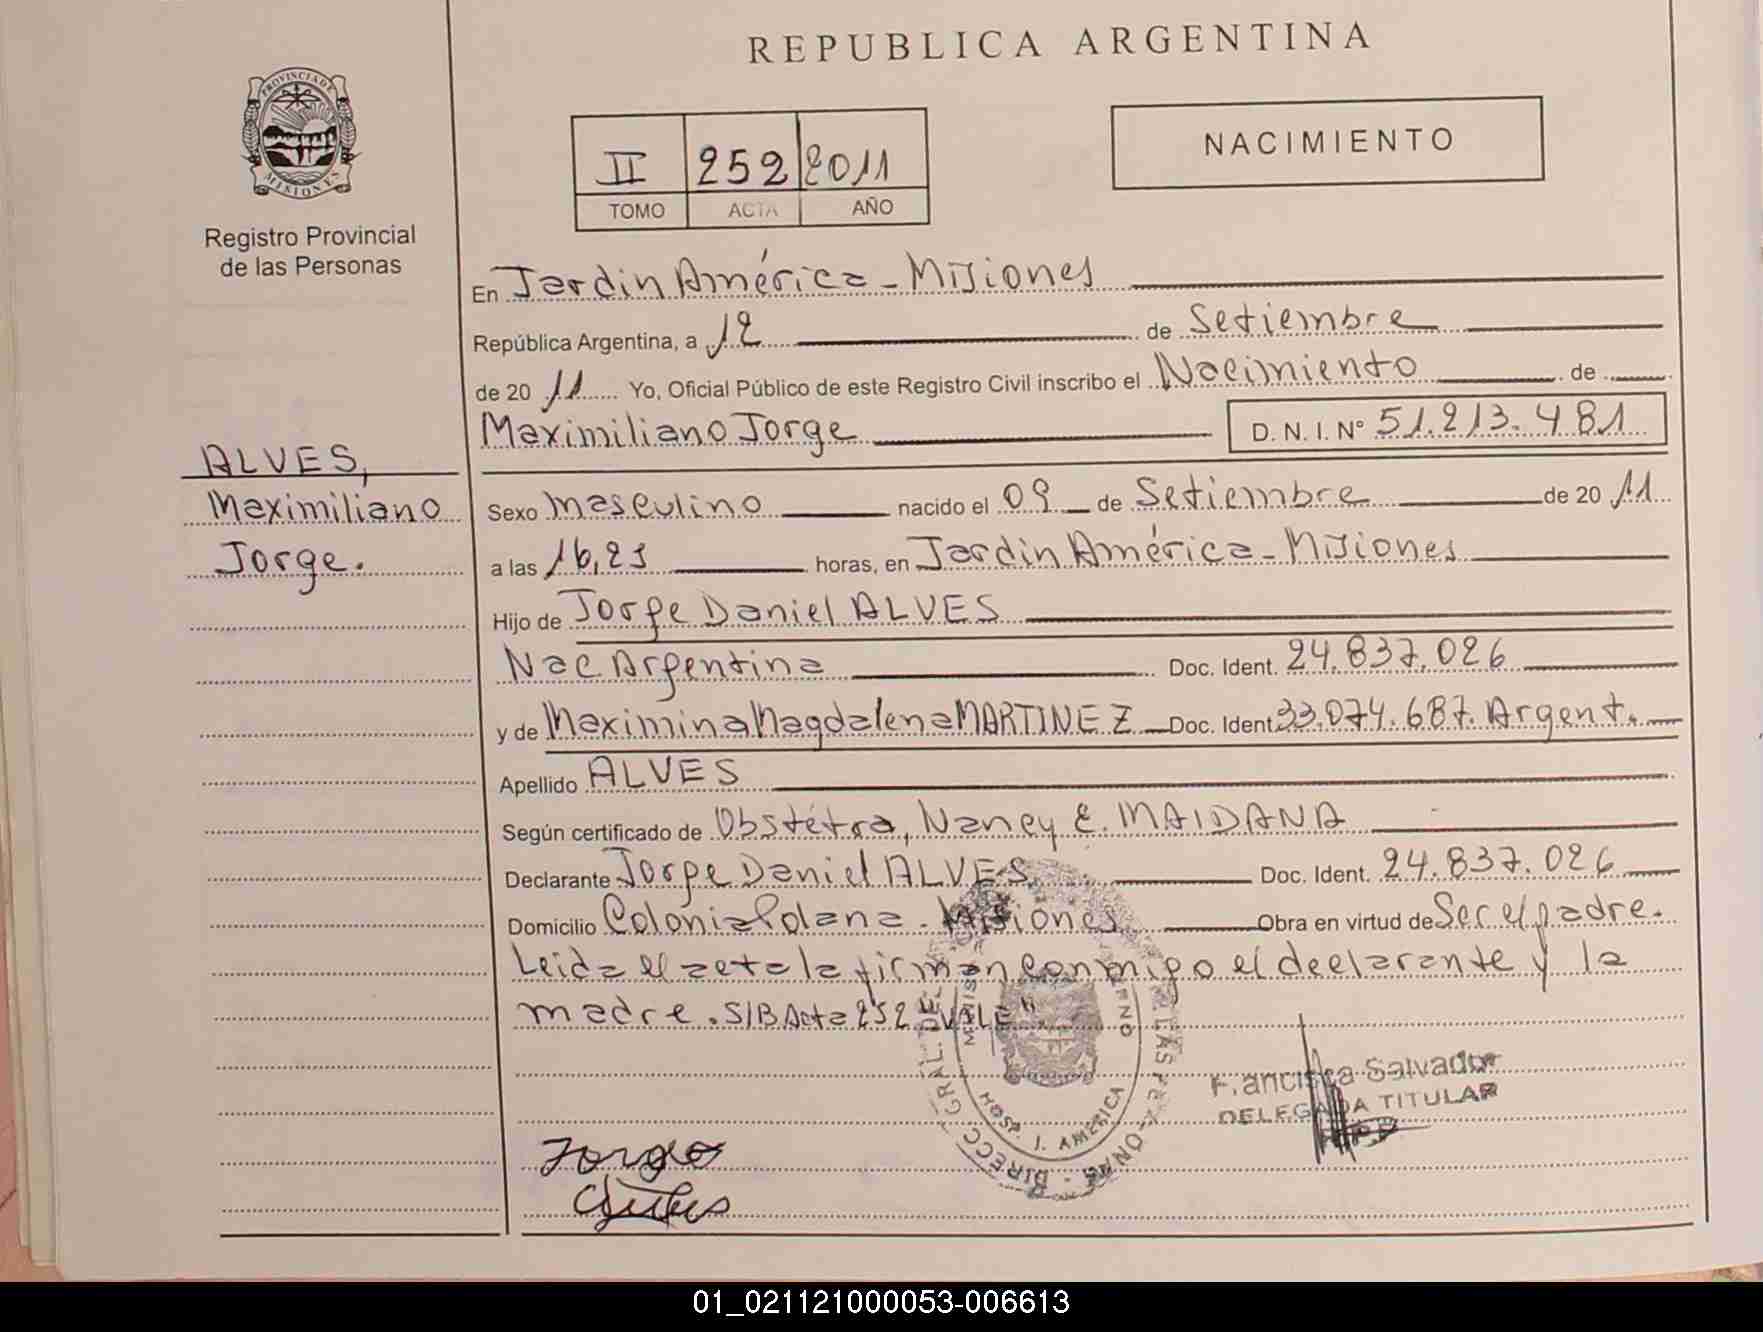 REPUBLICA ARGENTINA
PROVINCIA DE
MISIONES
Registro Provincial
de las Personas
II 252 2011
TOMO ACTA AÑO
NACIMIENTO
En Jardin América - Misiones
República Argentina, a 12 de Setiembre
de 20 11 Yo, Oficial Público de este Registro Civil inscribo el Nacimiento de
Maximiliano Jorge D. N. I. N° 51.213.481
ALVES,
Maximiliano
Jorge.
Sexo masculino nacido el 09 de Setiembre de 20 11
a las 16,23 horas, en Jardin América - Misiones
Hijo de Jorge Daniel ALVES
Nac Argentina Doc. Ident. 24.837.026
y de Maximina Magdalena MARTINEZ Doc. Ident 33.074.687. Argent.
Apellido ALVES
Según certificado de Obstétra, Nancy E. MAIDANA
Declarante Jorge Daniel ALVES Doc. Ident. 24.837.026
Domicilio Colonia Polana - Misiones Obra en virtud de Ser el padre.
Leida el acta la firman conmigo el declarante y la
madre. S/B Acta 252 "VALE"
DIRECC. GRAL. DE LAS PERSONAS
HOSP. J. AMERICA
Francisca Salvador
DELEGADA TITULAR
RPP
Jorge
01_021121000053-006613